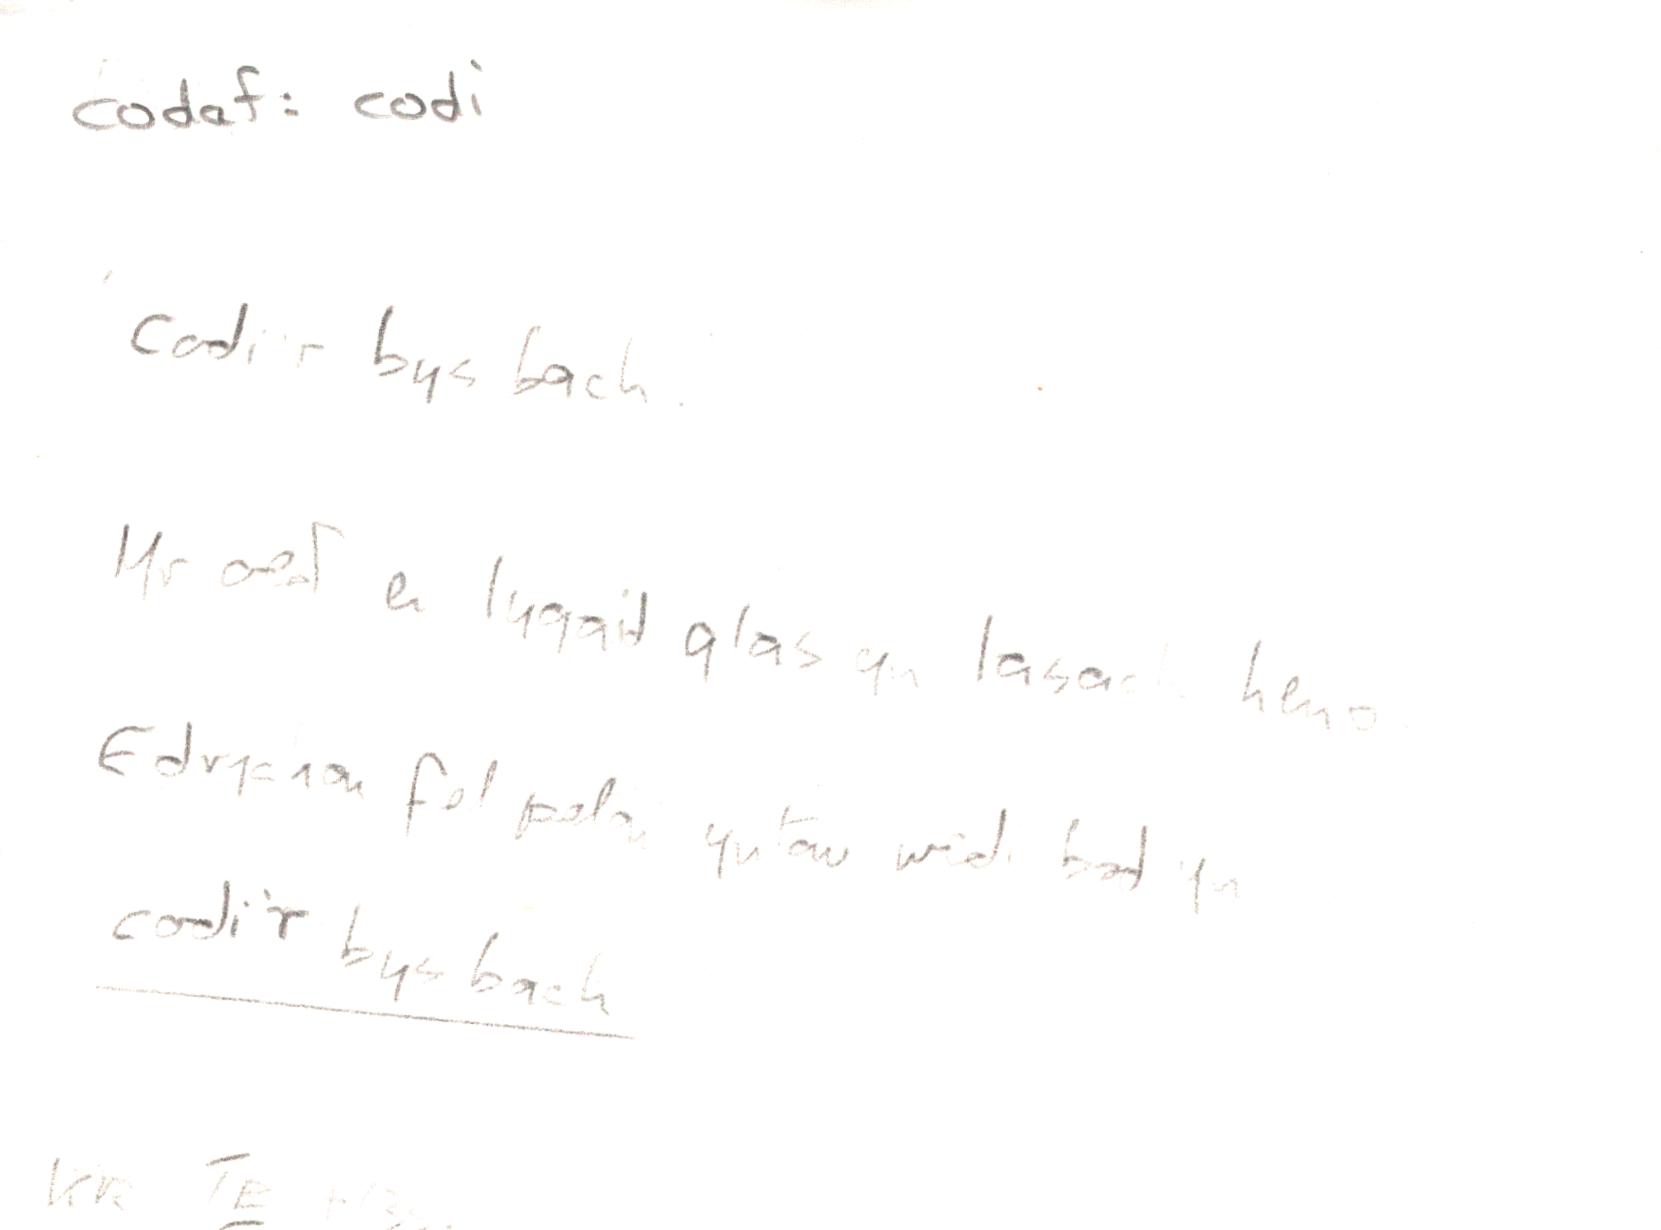 codaf: codi
Codi'r bys bach.
Yr oedd ei lygaid glas yn lasach heno.
Edrychai fel petai yntau wedi bod yn
codi'r bys bach
KR TE